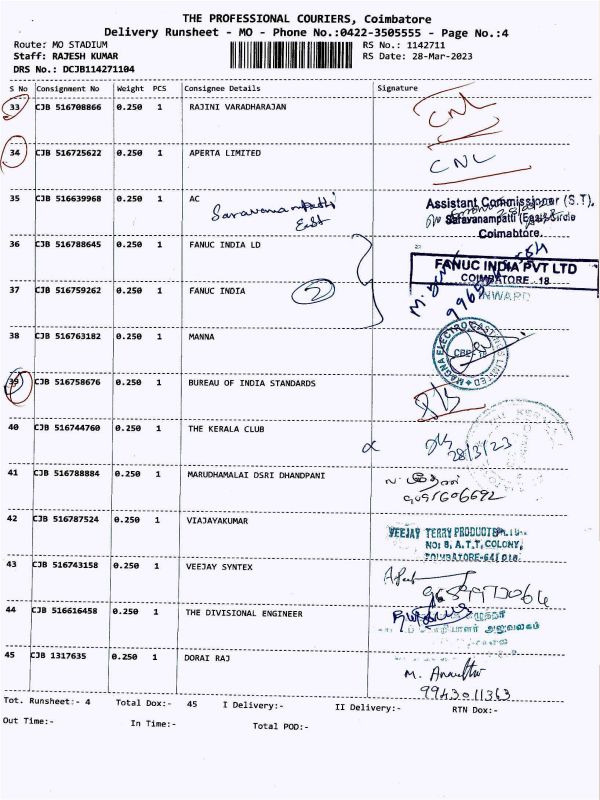 THE PROFESSIONAL COURIERS, Coimbatore
Delivery Runsheet - MO - Phone No.:0422-3505555 - Page No.:4
Route: MO STADIUM RS No.: 1142711
Staff: RAJESH KUMAR RS Date: 28-Mar-2023
DRS No.: DCJB114271104
S No Consignment No Weight PCS Consignee Details Signature
33 CJB 516708866 0.250 1 RAJINI VARADHARAJAN CNL
34 CJB 516725622 0.250 1 APERTA LIMITED CNL
35 CJB 516639968 0.250 1 AC Assistant Commissioner (S.T),
Saravanampatti Saravanampatti (East) Circle
East Coimbatore.
36 CJB 516788645 0.250 1 FANUC INDIA LD
FANUC INDIA PVT LTD
COIMBATORE - 18.
37 CJB 516759262 0.250 1 FANUC INDIA 2 INWARD
38 CJB 516763182 0.250 1 MANNA
MAGNA ELECTRO CASTINGS LIMITED
CBE-18
39 CJB 516758676 0.250 1 BUREAU OF INDIA STANDARDS D/L
40 CJB 516744760 0.250 1 THE KERALA CLUB
28/3/23
41 CJB 516788884 1 0.250 1 MARUDHAMALAI DSRI DHANDPANI
42 CJB 516787524 0.250 1 VIAJAYAKUMAR
VEEJAY TERRY PRODUCTS
NO: 8, A.T.T. COLONY,
COIMBATORE-641 018.
43 CJB 516743158 0.250 1 VEEJAY SYNTEX
44 CJB 516616458 0.250 1 THE DIVISIONAL ENGINEER
அலுவலகம்
45 CJB 1317635 0.250 1 DORAI RAJ
9943011363
Tot. Runsheet:- 4 Total Dox:- 45 I Delivery:- II Delivery:- RTN Dox:-
Out Time:- In Time:- Total POD:-